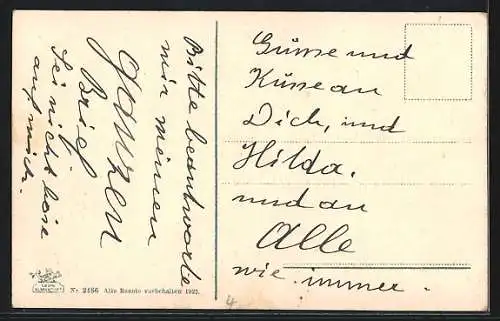 Bitte beantworte
mir meinen
Ganzen
Brief
Sei nicht böse
auf mich.
Grüsse und
Küsse an
Dich, und
Hilda.
und an
Alle
wie immer.
Nr. 2466 Alle Rechte vorbehalten 1925.
4